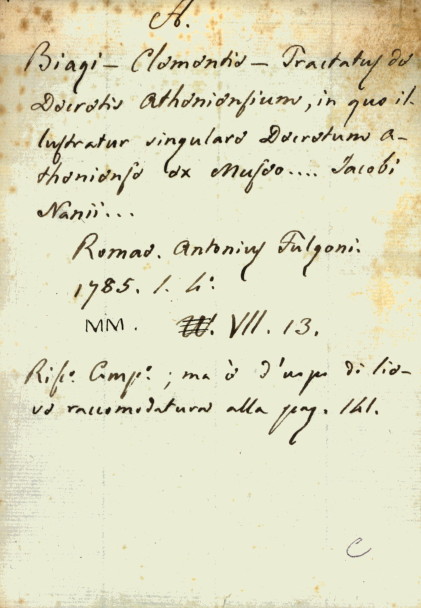 A.
Biagi – Clementis – Tractatus de
Decretis Atheniensium, in quo il-
lustratur singulare Decretum A-
theniense ex Museo.... Jacobi
Nanii...
Romae. Antonius Fulgoni.
1785. 1. 4º.
MM. VII. 13.
Risc.º Comp.º ; ma è d'uopo di lie-
ve raccomodatura alla pag. 141.
C